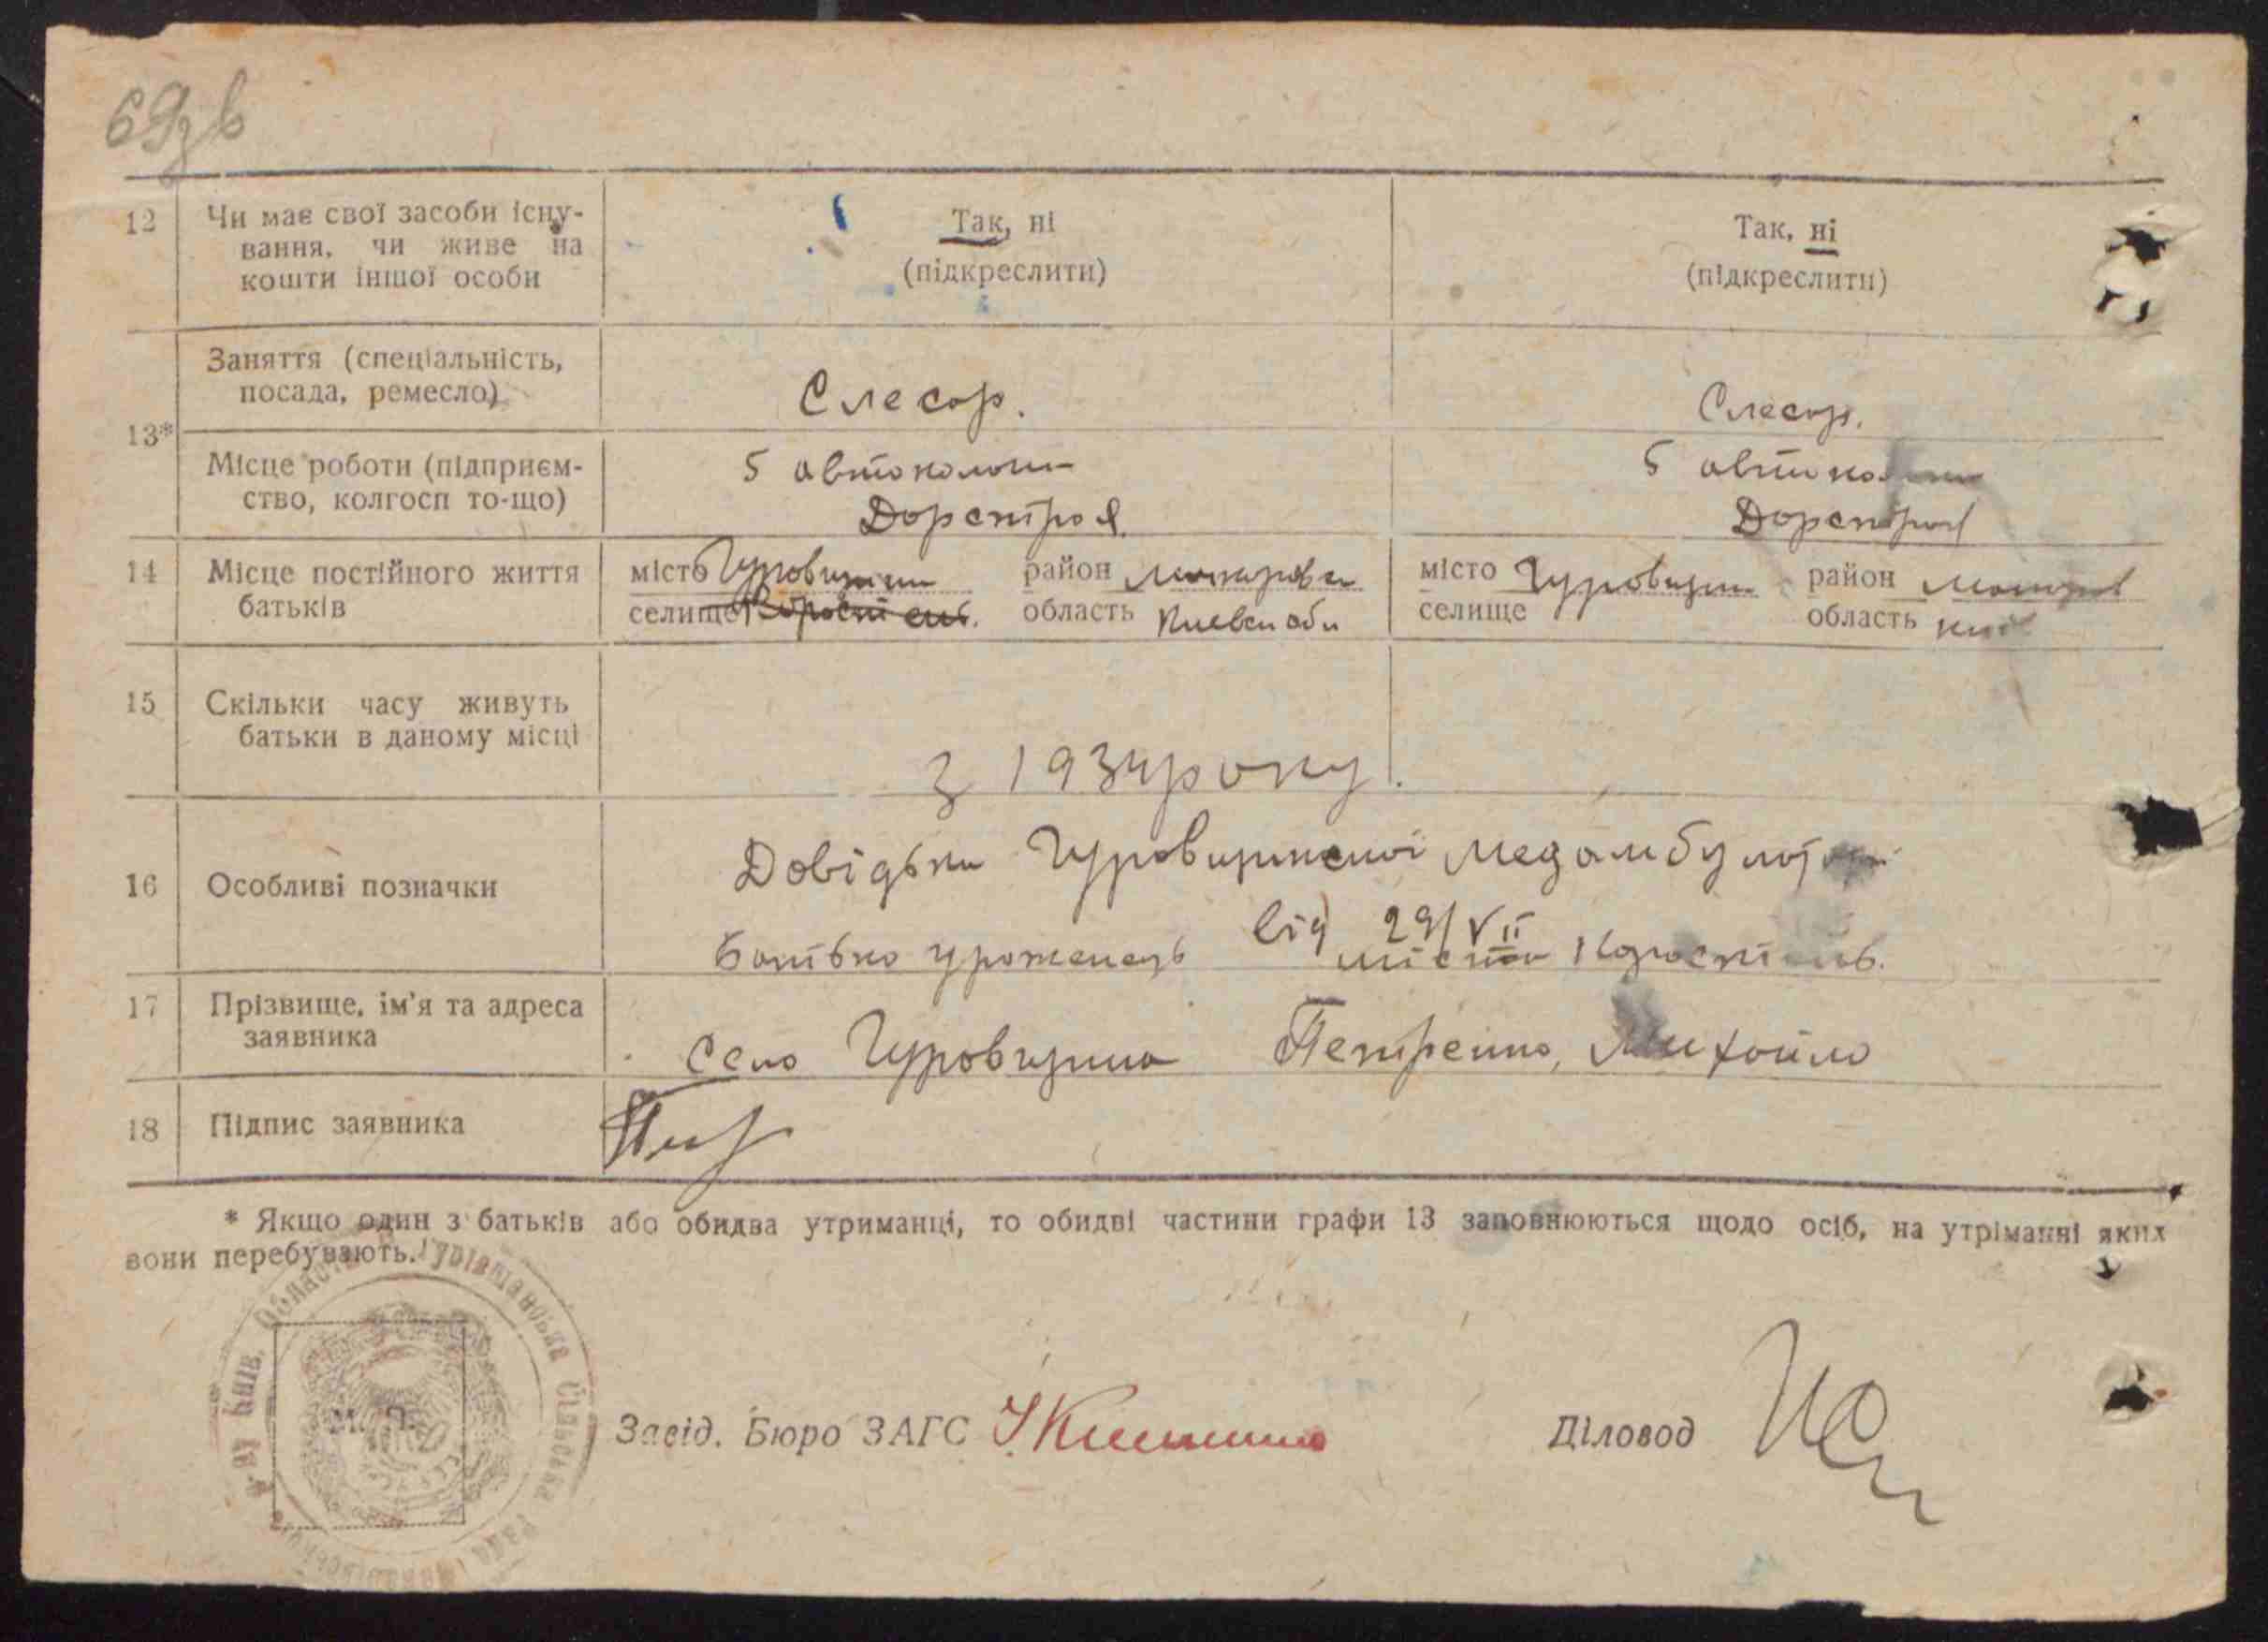 69зв
12 Чи має свої засоби існу-
вання, чи живе на
кошти іншої особи
Так, ні
(підкреслити)
Так, ні
(підкреслити)
13*
Заняття (спеціальність,
посада, ремесло)
Слесар.
Слесар.
Місце роботи (підприєм-
ство, колгосп то-що)
5 автоколони
Дорстроя
5 автоколони
Дорстроя
14 Місце постійного життя
батьків
місто Гуровщина район Макаровск
селище Коростень. область Киевск обл
місто Гуровщин район Макаров
селище область Київ
15 Скільки часу живуть
батьки в даному місці
з 1934 року.
16 Особливі позначки
Довідька Гуровщинської медамбулаторії
від 29/VII
Батько уроженець міста Коростень.
17 Прізвище, ім'я та адреса
заявника
Село Гуровщина Петренко, Михайло
18 Підпис заявника
* Якщо один з батьків або обидва утриманці, то обидві частини графи 13 заповнюються щодо осіб, на утріманні яких
вони перебувають.
М. П.
Завід. Бюро ЗАГС
Діловод